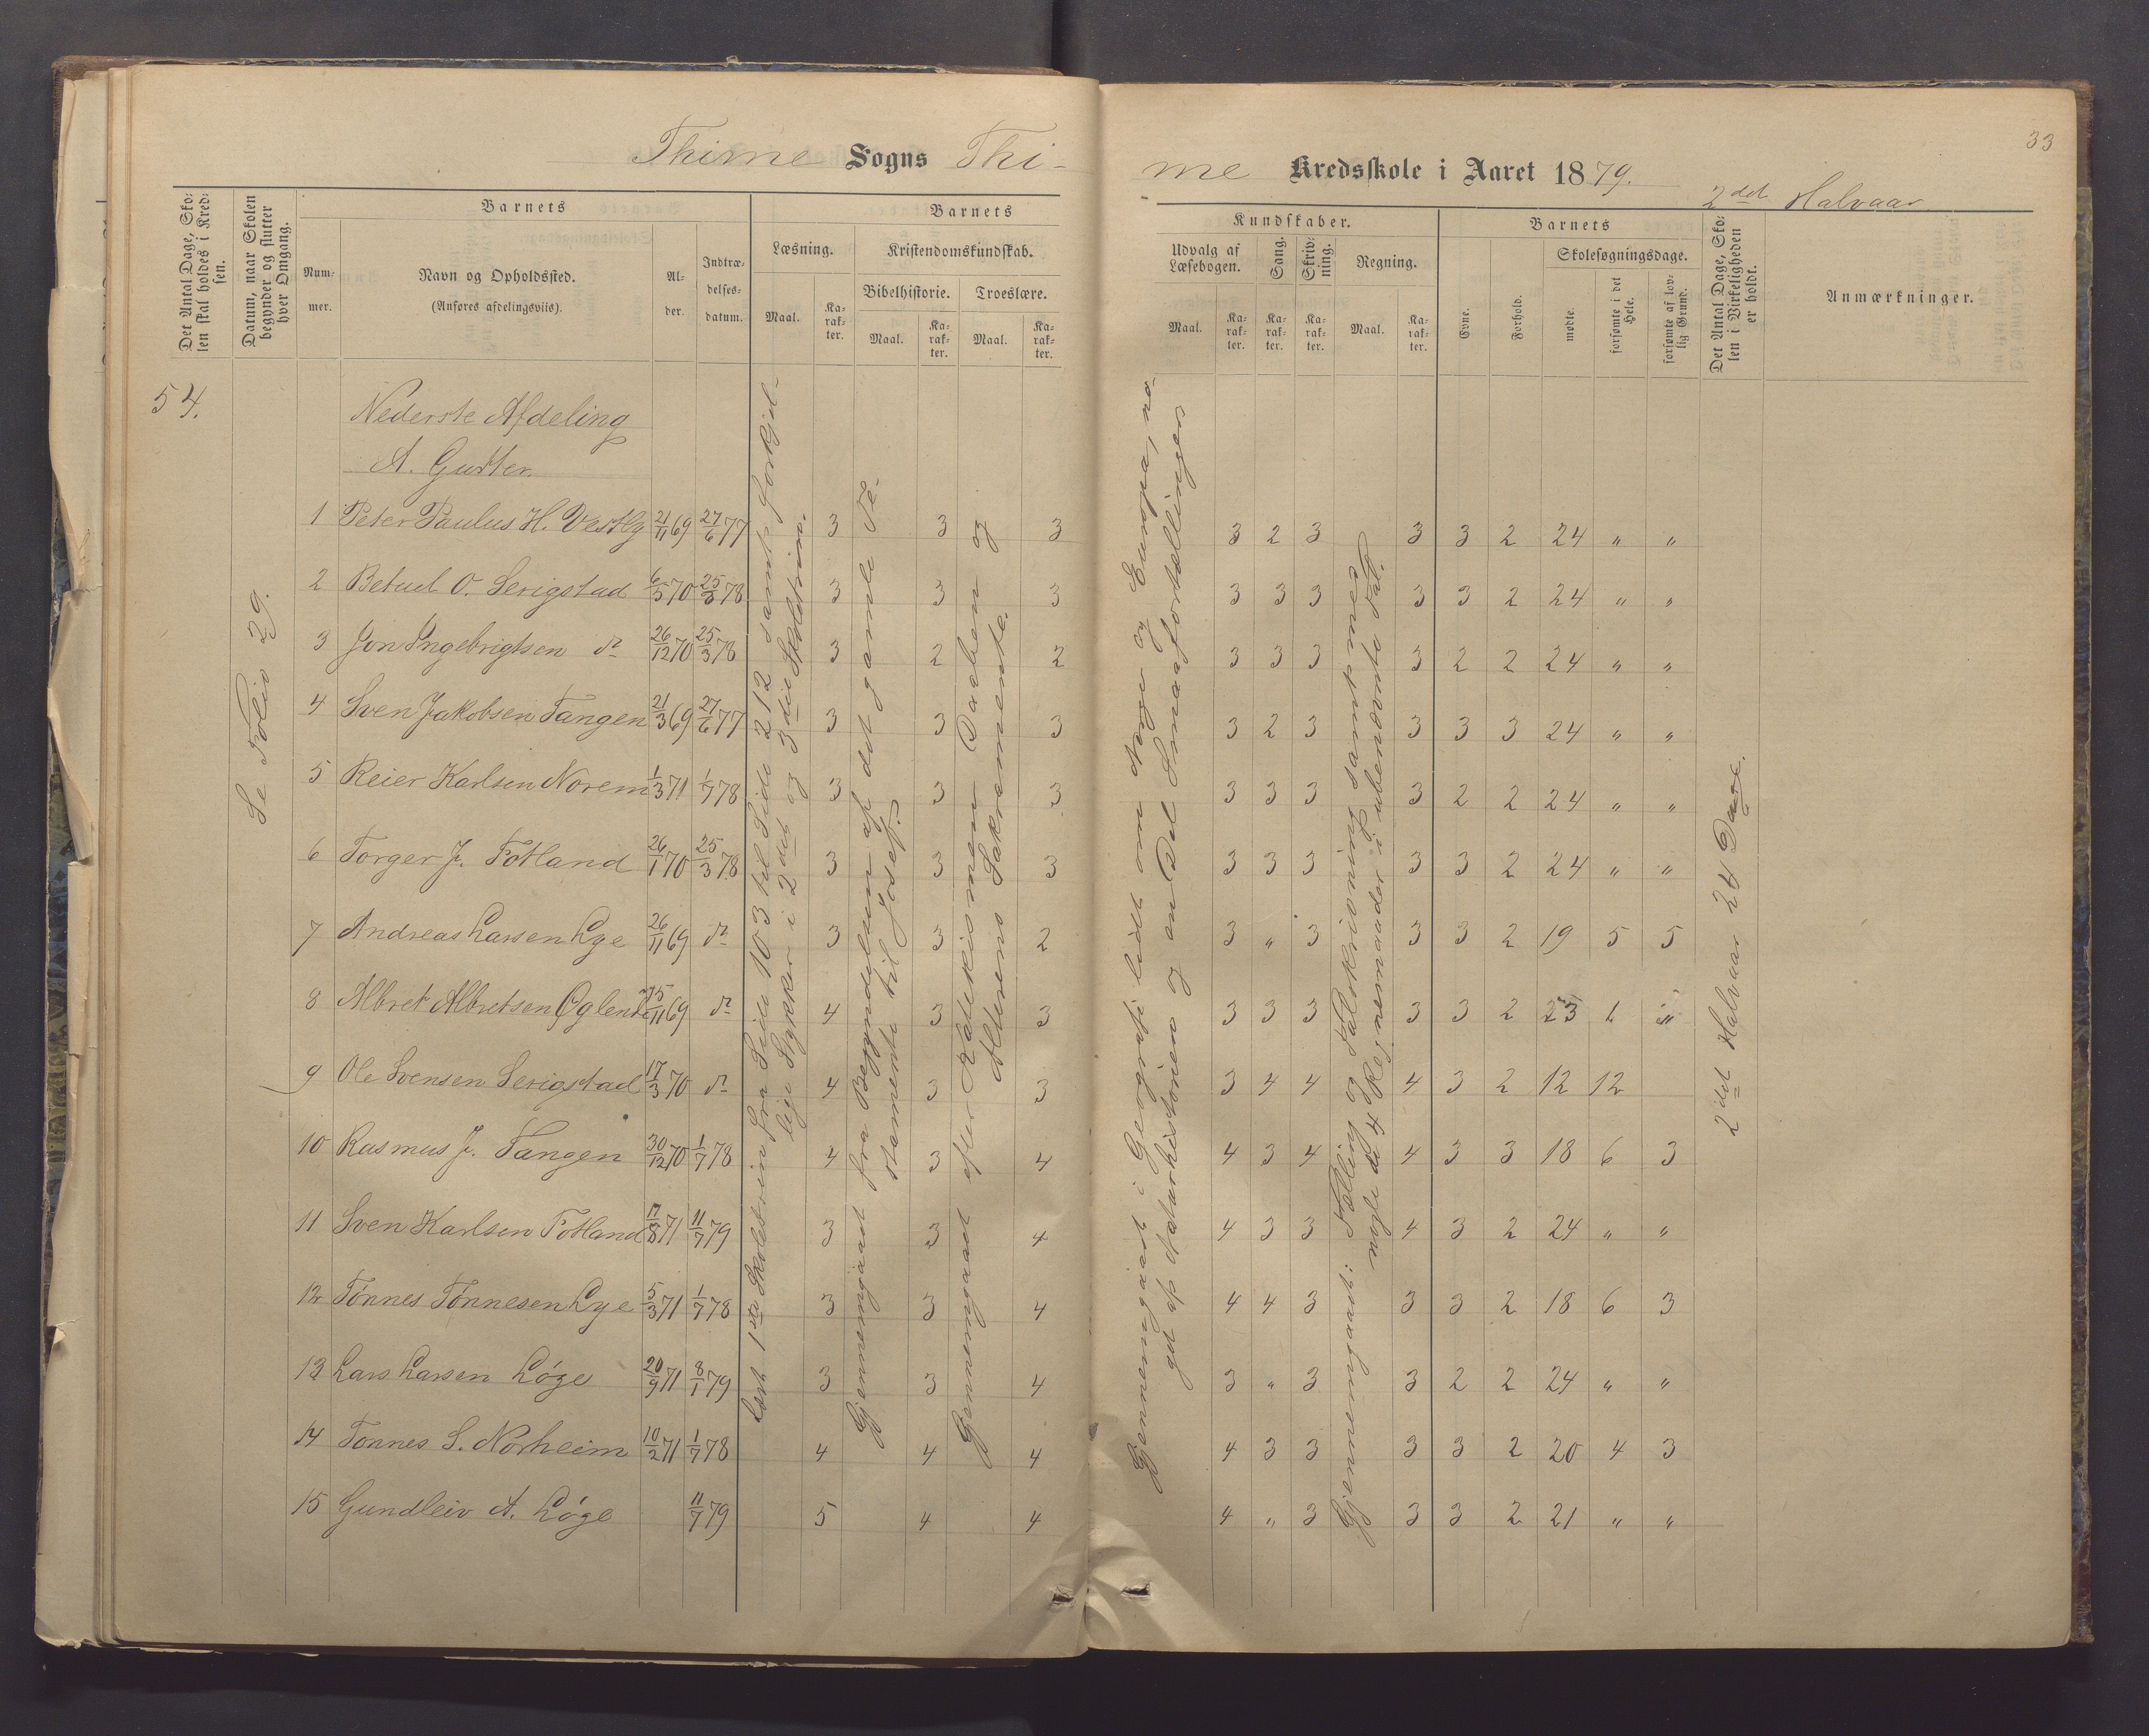 33
Thime Sogns Thi-
me Kredsskole i Aaret 1879.
2det Halvaar
Det Antal Dage, Sko-
len skal holdes i Kred-
sen.
Datum, naar Skolen
begynder og slutter
hver Omgang.
Barnets
Num-
mer.
Navn og Opholdssted.
(Anføres afdelingsviis).
Al-
der.
Indtræ-
delses-
datum.
Barnets
Læsning.
Maal.
Ka-
rak-
ter.
Kristendomskundskab.
Bibelhistorie.
Maal.
Ka-
rak-
ter.
Troeslære.
Maal.
Ka-
rak-
ter.
Kundskaber.
Udvalg af
Læsebogen.
Maal.
Ka-
rak-
ter.
Sang.
Ka-
rak-
ter.
Skriv-
ning.
Ka-
rak-
ter.
Regning.
Maal.
Ka-
rak-
ter.
Barnets
Evne.
Forhold.
Skolesøgningsdage.
mødte.
forsømte i det
Hele.
forsømte af lov-
lig Grund.
Det Antal Dage, Sko-
len i Virkeligheden
er holdt.
Anmærkninger.
54.
Se Folio 29.
Nederste Afdeling
A. Gutter.
1 Peter Paulus H. Vestly 21/11 69 27/6 77 3 3 3 3 2 3 3 3 2 24 " "
2 Betuel O. Serigstad 6/5 70 25/3 78 3 3 3 3 3 3 3 3 2 24 " "
3 Jon Ingebrigtsen do 26/12 70 25/3 78 3 2 2 3 3 3 3 2 2 24 " "
4 Sven Jakobsen Tangen 21/3 69 27/6 77 3 3 3 3 2 3 3 3 3 24 " "
5 Reier Karlsen Norem 1/3 71 1/7 78 3 3 3 3 3 3 3 2 2 24 " "
6 Torger J. Fotland 26/1 70 25/3 78 3 3 3 3 3 3 3 3 2 24 " "
7 Andreas Larsen Lye 26/11 69 do 3 3 2 3 " 3 3 3 2 19 5 5
8 Albret Albretsen Øglend 15/11 69 do 4 3 3 3 3 3 3 3 2 23 1 "
9 Ole Svensen Serigstad 17/3 70 do 4 3 3 3 4 4 4 3 2 12 12
10 Rasmus J. Tangen 30/12 70 1/7 78 4 3 4 4 3 4 4 3 3 18 6 3
11 Sven Karlsen Fotland 17/8 71 11/7 79 3 3 4 4 3 3 4 3 2 24 " "
12 Tønnes Tønnesen Lye 5/3 71 1/7 78 3 3 4 4 4 3 3 3 2 18 6 3
13 Lars Larsen Løge 20/9 71 8/1 79 3 3 4 3 " 3 3 2 2 24 " "
14 Tonnes S. Norheim 10/2 71 1/7 78 4 4 4 4 3 3 3 3 2 20 4 3
15 Gundleiv A. Løge 11/7 79 5 4 4 4 " 3 3 3 2 21 " "
Læst 1ste Skoletrin fra Side 103 til Side 212 samt forskjel-
lige Stykker i 2det og 3die Skoletrin.
Gjennemgaaet fra Begyndelsen af det gamle Te-
stamente til Josef.
Gjennemgaaet efter Katekismen Daaben og
Alterens Sakramente.
Gjennemgaaet i Geografi lidt om Norge og Europa, no-
get af Naturhistorien og en Del Smaafortællinger
Gjennemgaaet: Tælling og Talskrivning samt med
nogle de 4 Regnemaader i ubenævnte Tal.
2det Halvaar 24 Dage.